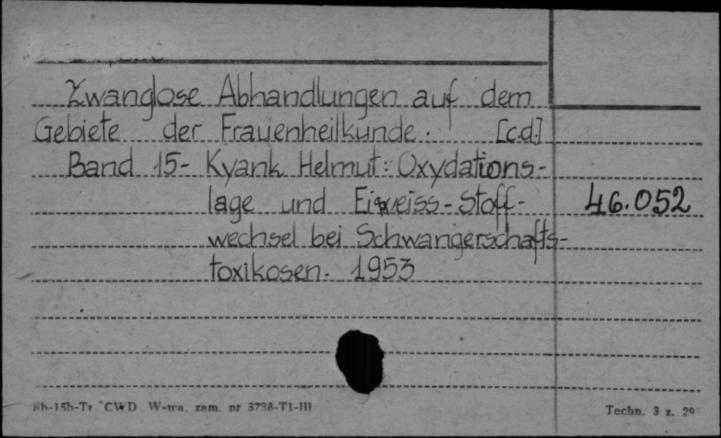 Zwanglose Abhandlungen auf dem
Gebiete der Frauenheilkunde. [c.d.]
Band 15- Kyank Helmut: Oxydations-
lage und Eiweiss-Stoff-
46.052
wechsel bei Schwangerschafts-
toxikosen. 1953
CWD W-wa. zam. nr 3738-T1-III
Techn. 3 z. 29